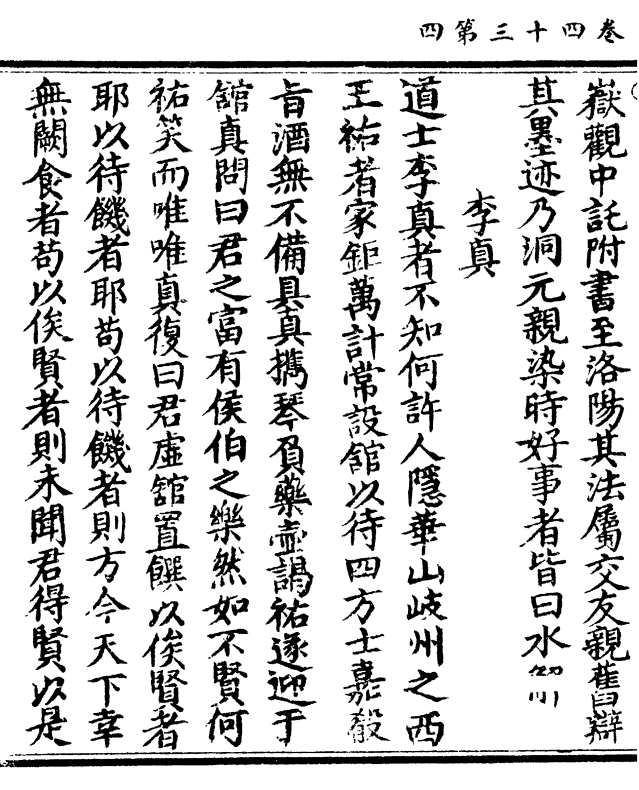 卷四十三第四
嶽觀中託附書至洛陽其法屬交友親舊辯
其墨迹乃洞元親染時好事者皆曰水
李真
道士李真者不知何許人隱華山岐州之西
王祐者家鉅萬計常設舘以待四方士嘉殽
旨酒無不備具真攜琴負藥壺謁祐遂迎于
舘真問曰君之富有侯伯之樂然如不賢何
祐笑而唯唯真復曰君虛舘置饌以俟賢者
耶以待饑者耶苟以待饑者則方今天下幸
無闕食者苟以俟賢者則未聞君得賢以是